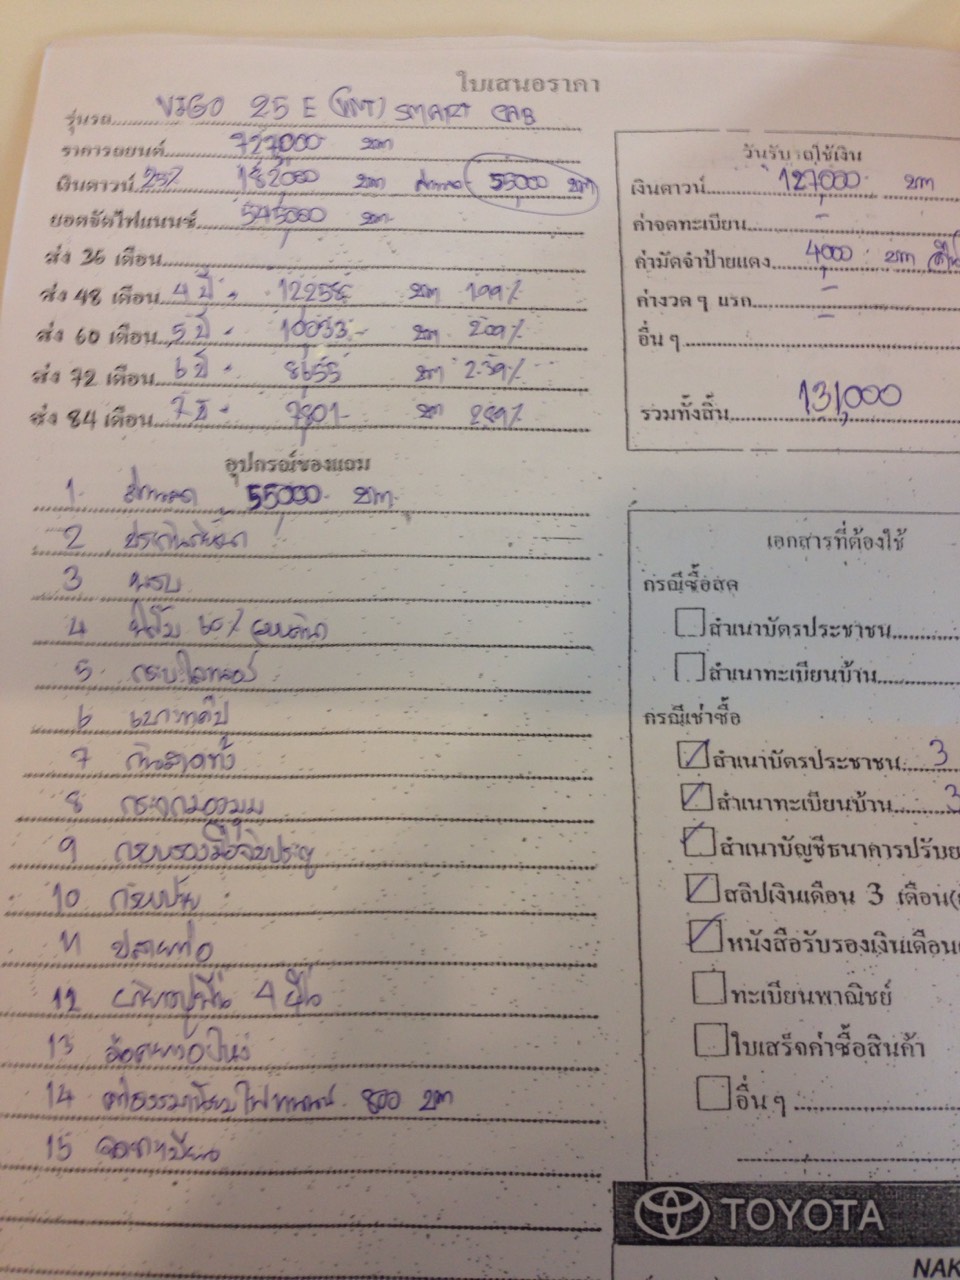 ใบเสนอราคา
รุ่นรถ VIGO 25 E (VNT) SMART CAB
ราคารถยนต์ 727000 บาท
เงินดาวน์ 25% 182000 บาท ส่วนลด 55000 บาท
ยอดจัดไฟแนนซ์ 545000 บาท
ส่ง 36 เดือน
ส่ง 48 เดือน 4 ปี - 12258 บาท 1.99%
ส่ง 60 เดือน 5 ปี - 10033 - บาท 2.09%
ส่ง 72 เดือน 6 ปี - 8655 บาท 2.39%
ส่ง 84 เดือน 7 ปี - 7801 - บาท 2.89%
อุปกรณ์ของแถม
1. ส่วนลด 55000 บาท
2 ประกันภัย
3 พรบ
4 ฟิล์ม 60%
5
6
7
8 กระจกมองมุม
9
10 กรอบป้าย
11 ปลายท่อ
12 ยางปูพื้น 4 ชิ้น
13 ล้อยางอะไหล่
14 ค่าธรรมเนียมไฟแนนซ์ 800 บาท
15 จดทะเบียน
วันรับรถใช้เงิน
เงินดาวน์ 127000 บาท
ค่าจดทะเบียน -
ค่ามัดจำป้ายแดง 4000 บาท
ค่างวด ๆ แรก -
อื่น ๆ
รวมทั้งสิ้น 131,000
เอกสารที่ต้องใช้
กรณีซื้อสด
สำเนาบัตรประชาชน
สำเนาทะเบียนบ้าน
กรณีเช่าซื้อ
สำเนาบัตรประชาชน 3
สำเนาทะเบียนบ้าน 3
สำเนาบัญชีธนาคารปรับย
สลิปเงินเดือน 3 เดือน(
หนังสือรับรองเงินเดือน
ทะเบียนพาณิชย์
ใบเสร็จค่าซื้อสินค้า
อื่น ๆ
TOYOTA
NAK